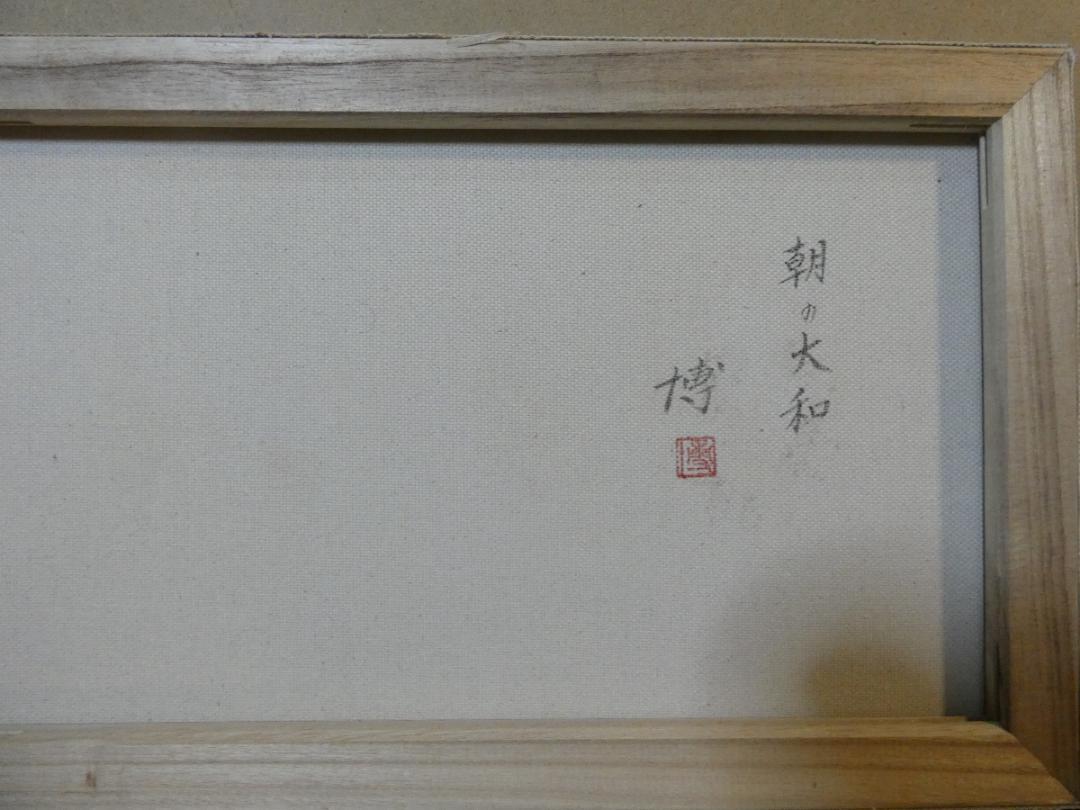 朝の大和
博